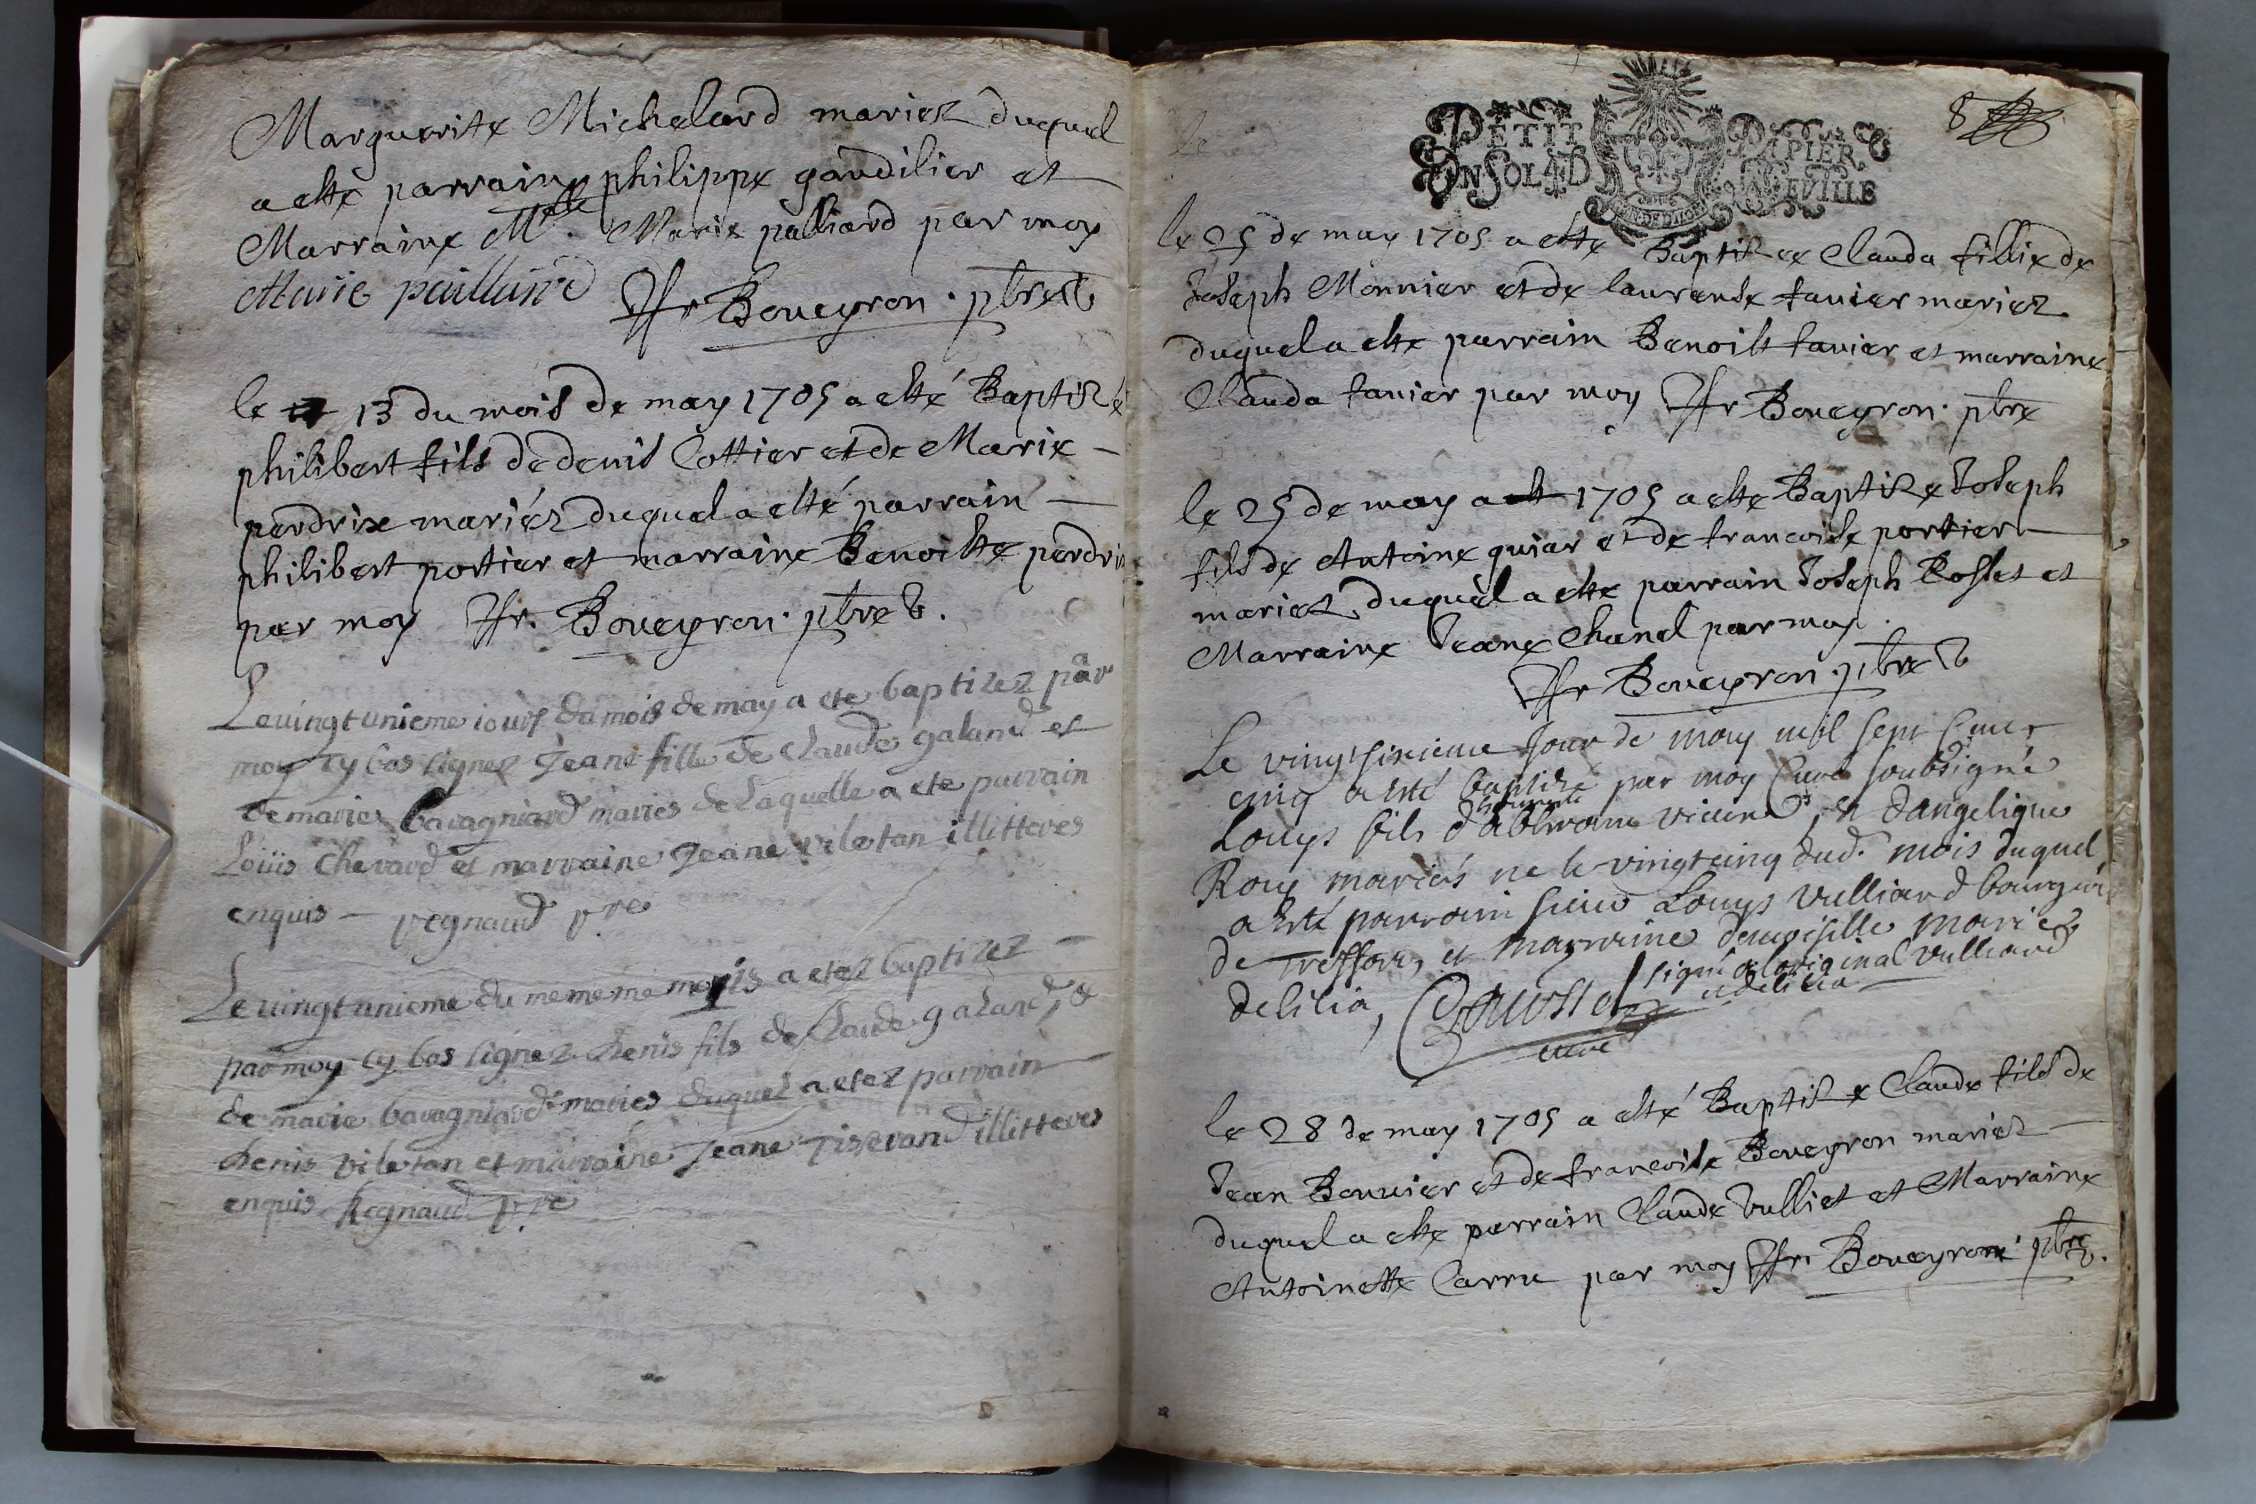 Marguerite Michelard mariez duquel
a esté parrain philippe gandilier et
Marraine Mlle Marie palliard par moy
Marie paillard Fr Boueyron . pbre
le 13 du mois de may 1705 a esté Baptizé
philibert fils de denis Cottier et de Marie
perdrix mariéz duquel a esté parrain
philibert portier et marraine Benoiste perdrix
par moy Fr. Boueyron . pbre
Le uingt unieme iour du mois de may a ete baptizez par
moy cy bas signez Jeane fille de Claude galand et
de marie bavagniard maries de laquelle a ete parrain
Loüis Chevard et marraine Jeane viletan illitteres
enquis regnaud pre
Le uingt unieme du meme mois a etez baptizez
par moy cy bas signez denis fils de Claude galand &
de marie bavagniard maries duquel a etez parrain
denis viletan et marraine Jeane Tisserand illitteres
enquis Regnaud pre
8
PETIT PAPIER
UN SOL 4D LE FEUILLE
le 25 de may 1705 a esté Baptizé Clauda fillie de
Joseph Monnier et de laurense favier mariez
duquel a este parrain Benoist favier et marraine
Clauda favier par moy Fr Boueyron . pbre
le 25 de may 1705 a este Baptize Joseph
fils de Antoine quiar et de francoise portier
mariez duquel a este parrain Joseph Rosset et
Marraine Jeane Chanel par moy .
Fr Boueyron . pbre
Le vingt sixieme Jour de may mil sept cent
cinq a esté baptizé par moy Curé soubsigné
Louys fils d'abbraam vicend, et dangelique
Roux mariés ne le vingt cinq dud. mois duquel
a esté parrain sieur Louys Vulliard bourgeois
de treffort, et marraine demoiselle marie
delilia, signé a loriginal Vulliard
et delilia
curé
le 28 de may 1705 a esté Baptize Claude fils de
Jean Bouvier et de francoise Boueyron mariez
duquel a este parrain Claude Vulliet et Marraine
Antoinette Carru par moy Fr. Boueyron . pbre.